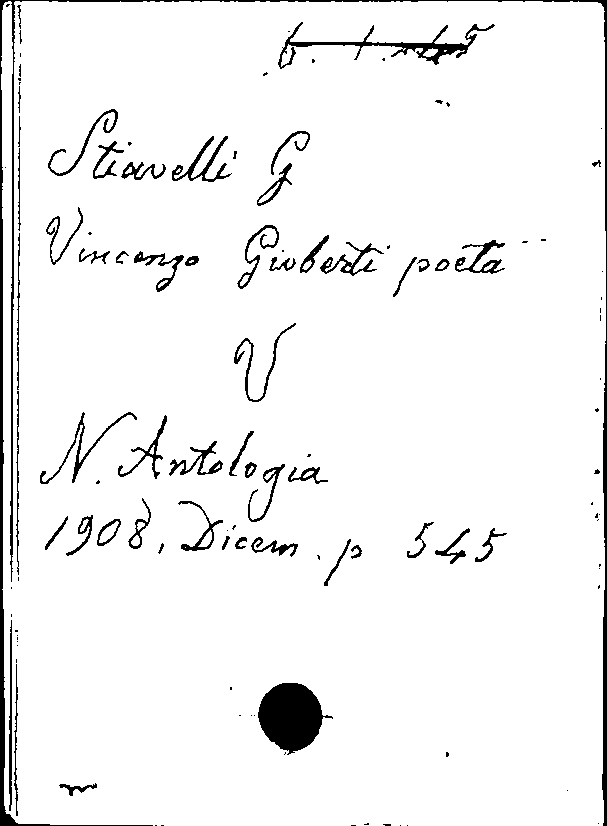 Stiavelli G
Vincenzo Gioberti poeta
V
N. Antologia
1908, Dicem. p 545